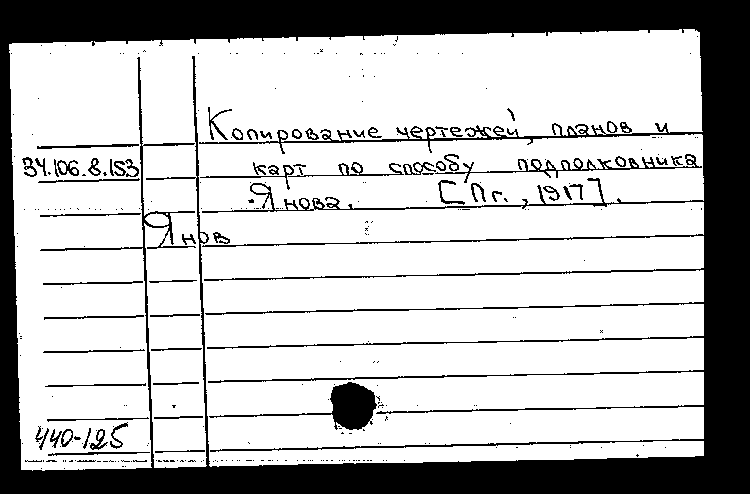 Копирование чертежей, планов и
34.106.8.153 карт по способу подполковника
Янова. [Пг., 1917].
Янов
440-125